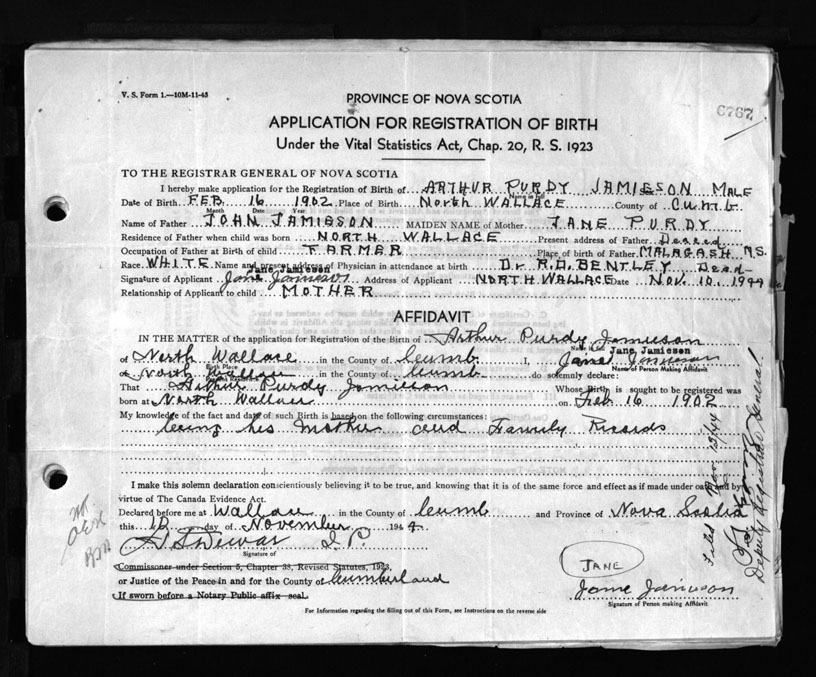 V. S. Form 1.—10M-11-43
6767
PROVINCE OF NOVA SCOTIA
APPLICATION FOR REGISTRATION OF BIRTH
Under the Vital Statistics Act, Chap. 20, R. S. 1923
TO THE REGISTRAR GENERAL OF NOVA SCOTIA
I hereby make application for the Registration of Birth of ARTHUR PURDY JAMIESON MALE
Name in Full
Date of Birth FEB. 16 1902 Place of Birth NORTH WALLACE County of Cumb.
Month Date Year
Name of Father JOHN JAMIESON MAIDEN NAME of Mother JANE PURDY
Residence of Father when child was born NORTH WALLACE Present address of Father Deceed
Occupation of Father at Birth of child FARMER Place of birth of Father MALAGASH N.S.
Race WHITE Name and present address of Physician in attendance at birth Dr R.D. BENTLEY Dead
Jane Jamieson
Signature of Applicant Jane Jamieson Address of Applicant NORTH WALLACE Date Nov. 10. 1944
Relationship of Applicant to child MOTHER
AFFIDAVIT
IN THE MATTER of the application for Registration of the Birth of Arthur Purdy Jamieson
Jane Jamieson
of North Wallace in the County of Cumb. I, Jane Jamieson
Birth Place Name of Person Making Affidavit
of North Wallace in the County of Cumb do solemnly declare:
That Arthur Purdy Jamieson Whose Birth is sought to be registered was
born at North Wallace on Feb. 16 1902
My knowledge of the fact and date of such Birth is based on the following circumstances:
being his Mother and Family Records
I make this solemn declaration conscientiously believing it to be true, and knowing that it is of the same force and effect as if made under oath and by
virtue of The Canada Evidence Act.
Declared before me at Wallace in the County of Cumb and Province of Nova Scotia
this 10 day of November 1944
Dewar J.P.
Signature of
Commissioner under Section 5, Chapter 38, Revised Statutes, 1923,
or Justice of the Peace in and for the County of Cumberland
If sworn before a Notary Public affix seal.
JANE
Jane Jamieson
Signature of Person making Affidavit
For Information regarding the filling out of this Form, see Instructions on the reverse side
Filed Nov. 13/44
Deputy Registrar General